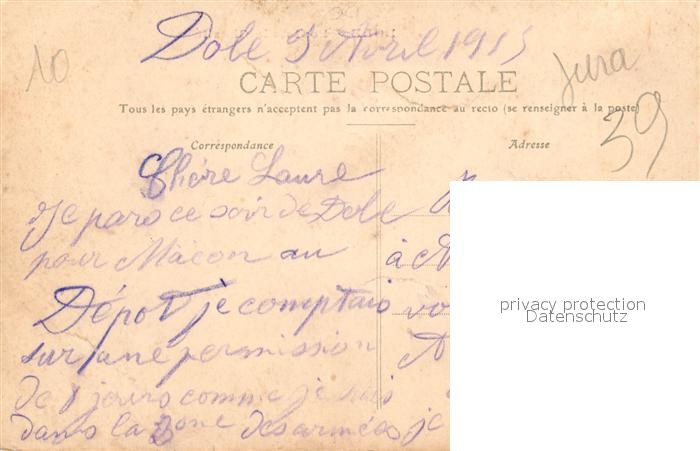 Dole 9 Avril 1915
10
Jura
39
CARTE POSTALE
Tous les pays étrangers n'acceptent pas la correspondance au recto (se renseigner à la poste)
Correspondance
Adresse
Chère Laure
Je pars ce soir de Dole
pour Mâcon au
Dépot je comptais
sur une permission
de 8 jours comme je suis
dans la zone des armées je
à
privacy protection
Datenschutz